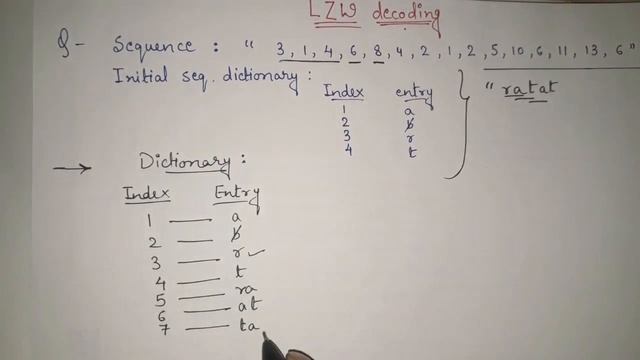 LZW decoding
Q- Sequence : " 3, 1, 4, 6, 8, 4, 2, 1, 2, 5, 10, 6, 11, 13, 6 "
Initial seq. dictionary :
Index entry
1 a
2 b
3 r
4 t
" ratat
Dictionary :
Index Entry
1 — a
2 — b
3 — r ✓
4 — t
5 — ra
6 — at
7 — ta